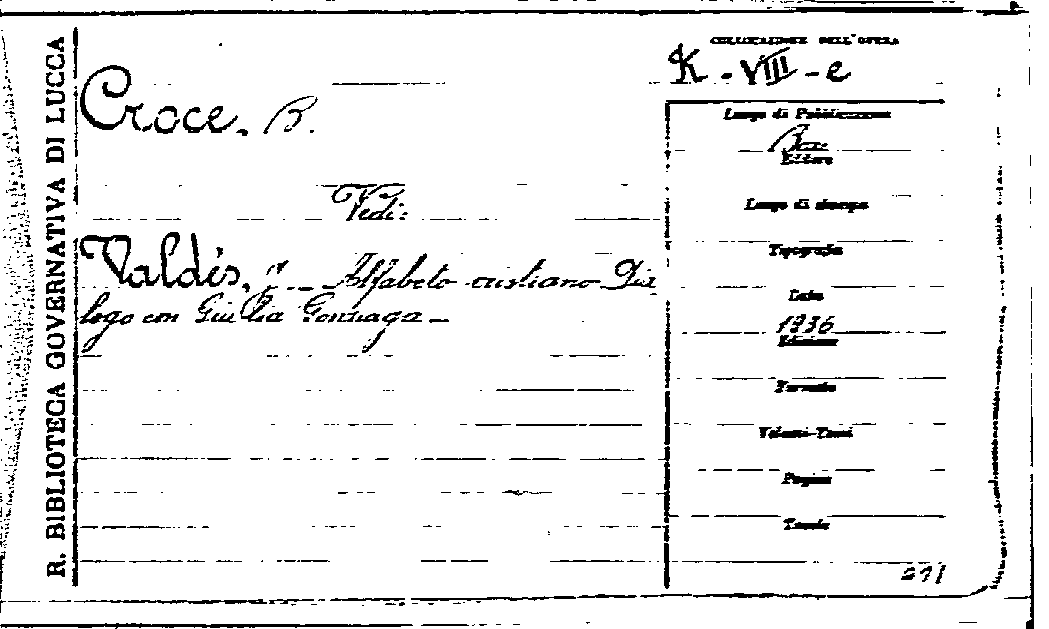 R. BIBLIOTECA GOVERNATIVA DI LUCCA
COLLOCAZIONE DELL'OPERA
K - VIII - e
Croce, B.
Luogo di Pubblicazione
Editore
Vedi:
Luogo di stampa
Valdés, J. - Alfabeto cristiano Dia
logo con Giulia Gonzaga -
Tipografia
Data
1936
Edizione
Formato
Volumi-Tomi
Pagine
Tavole
271